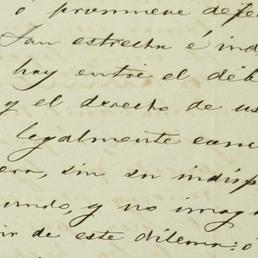 ó promueve de
Tan estrecha é ind
hay entre el dé
y el derecho de us
legalmente con
era, sin su indisp
undo, y no imag
ir de este dilema: ó